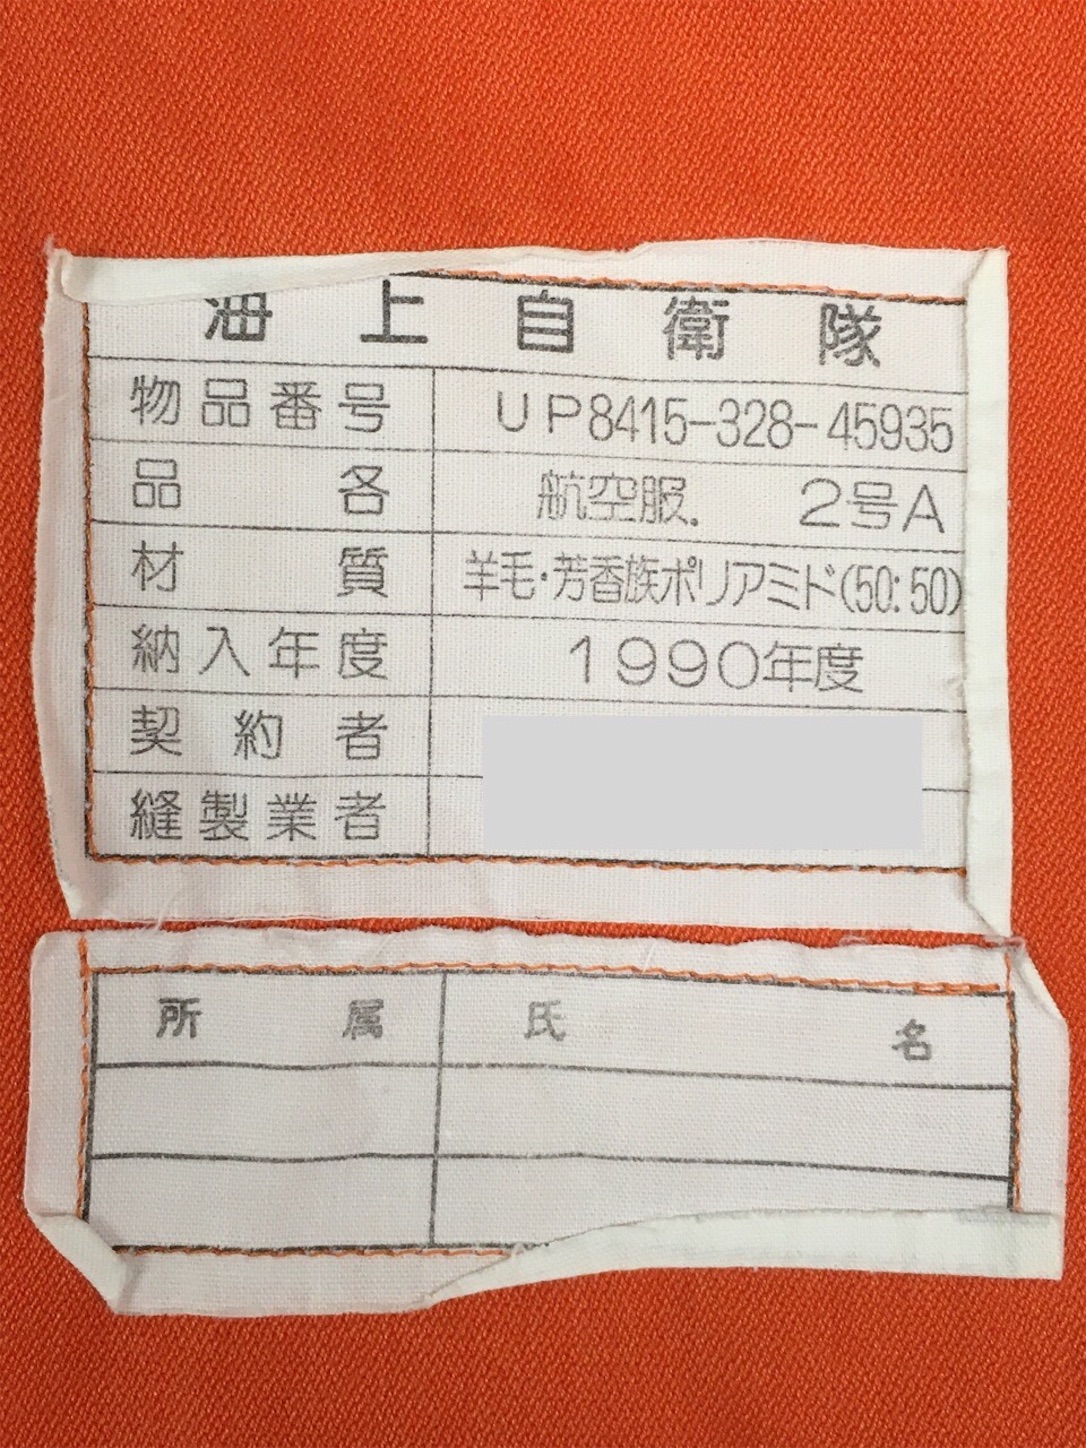 海上自衛隊
物品番号 UP8415-328-45935
品各 航空服. 2号A
材質 羊毛・芳香族ポリアミド(50:50)
納入年度 1990年度
契約者
縫製業者
所属 氏名